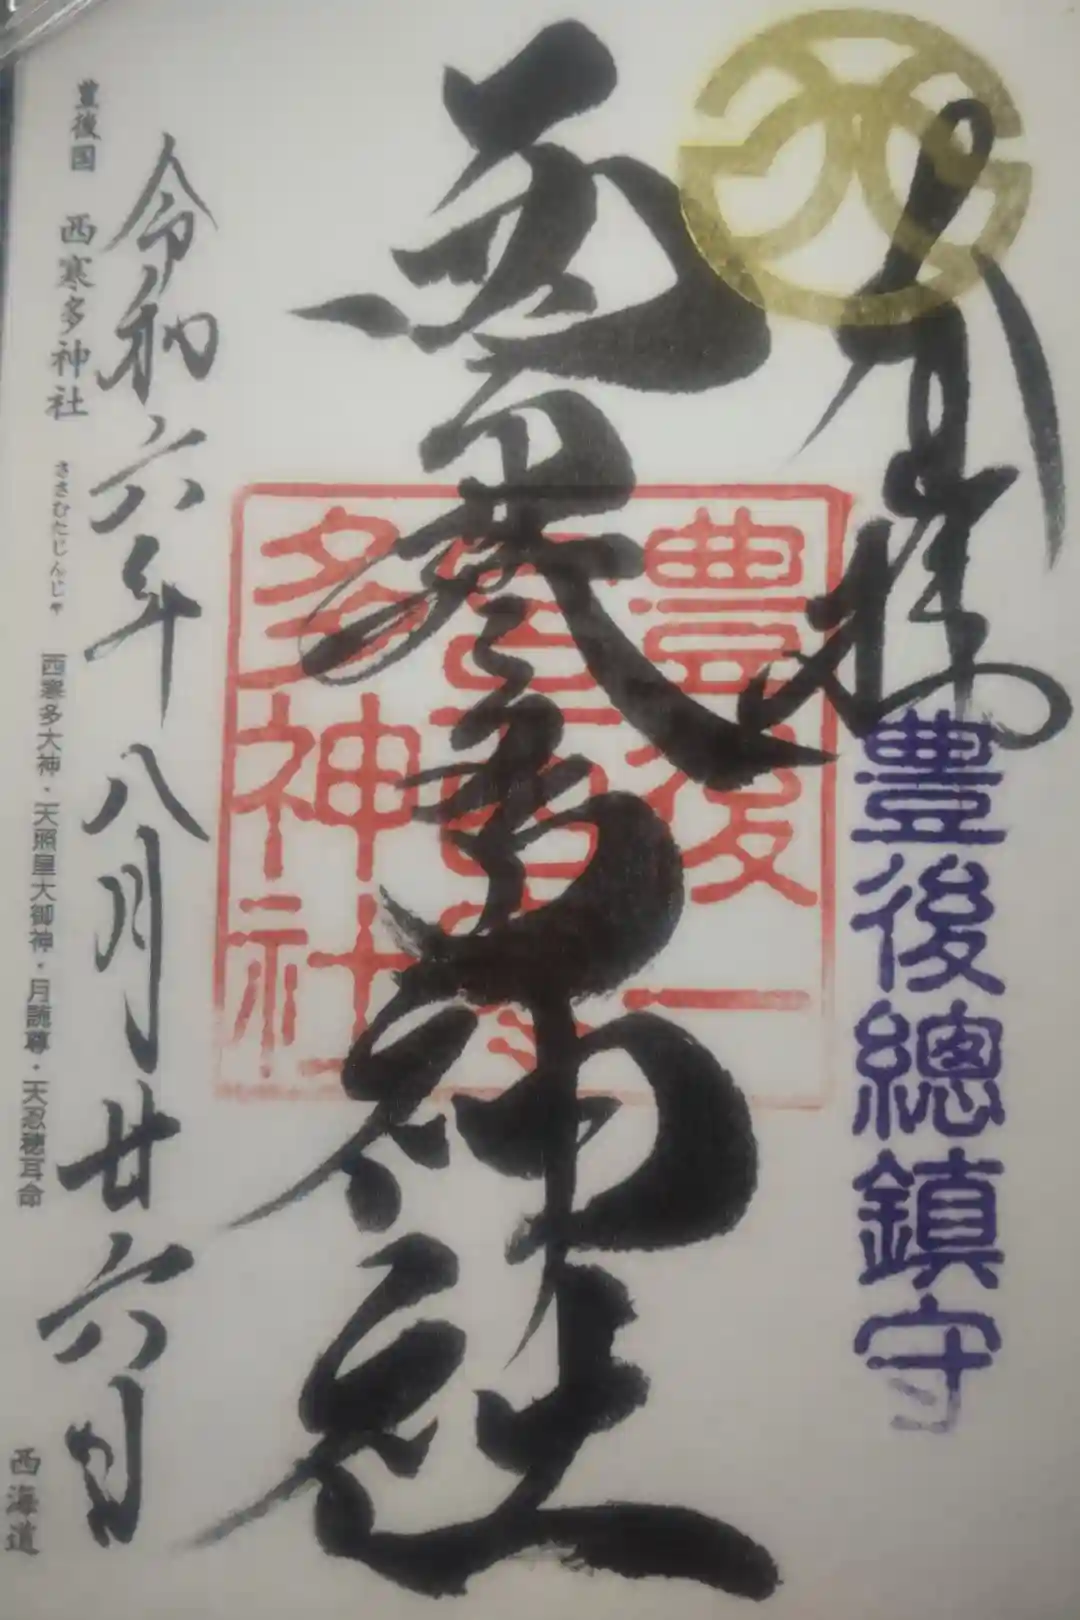 奉拝
豊後總鎮守
西寒多神社
豊後一
宮西寒
多神社
令和六年八月廿六日
豊後国 西寒多神社 ささむたじんじゃ 西寒多大神・天照皇大御神・月読尊・天忍穂耳命 西海道